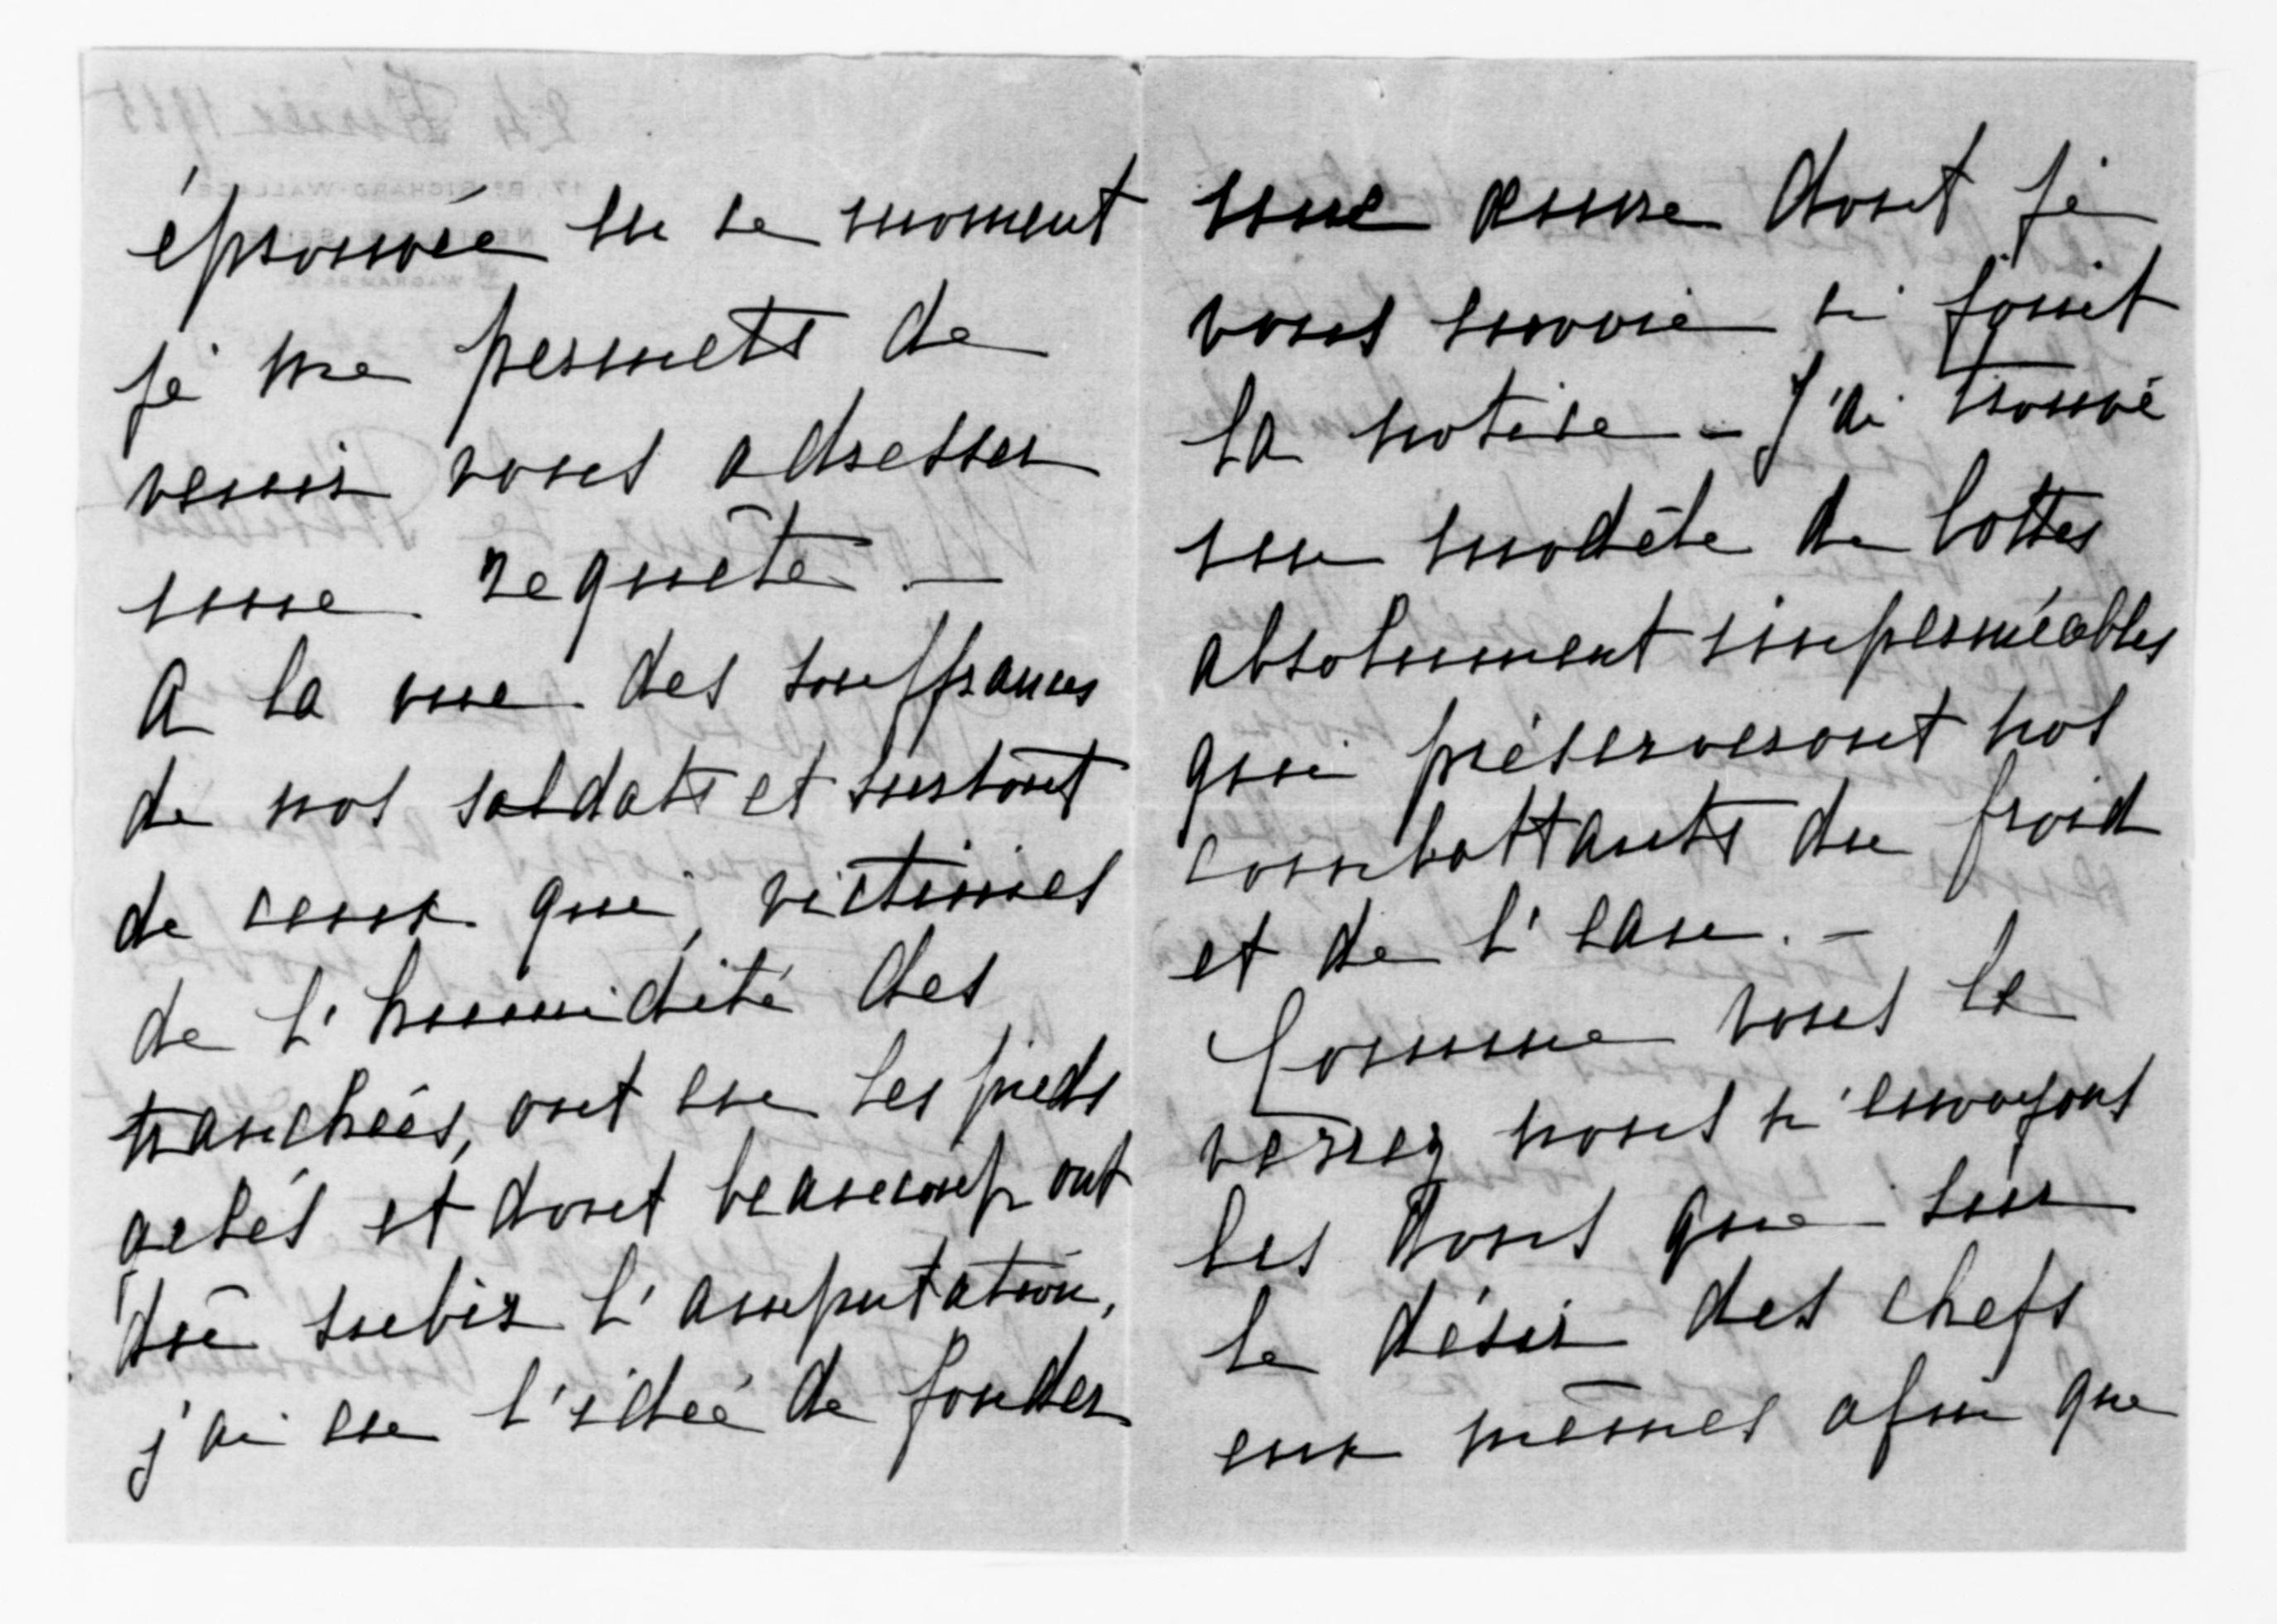 éprouvée en ce moment
je me permets de
venir vous adresser
une requête. —
A la vue des souffrances
de nos soldats et surtout
de ceux qui, victimes
de l'humidité des
tranchées, ont eu les pieds
gelés et dont beaucoup ont
dû subir l'amputation,
j'ai eu l'idée de fonder
une œuvre dont je
vous envoie ci joint
la notice — J'ai trouvé
un modèle de bottes
absolument imperméables
qui préserveront nos
combattants du froid
et de l'eau. —
Comme vous le
verrez nous n'envoyons
les dons que sur
le désir des chefs
eux mêmes afin que